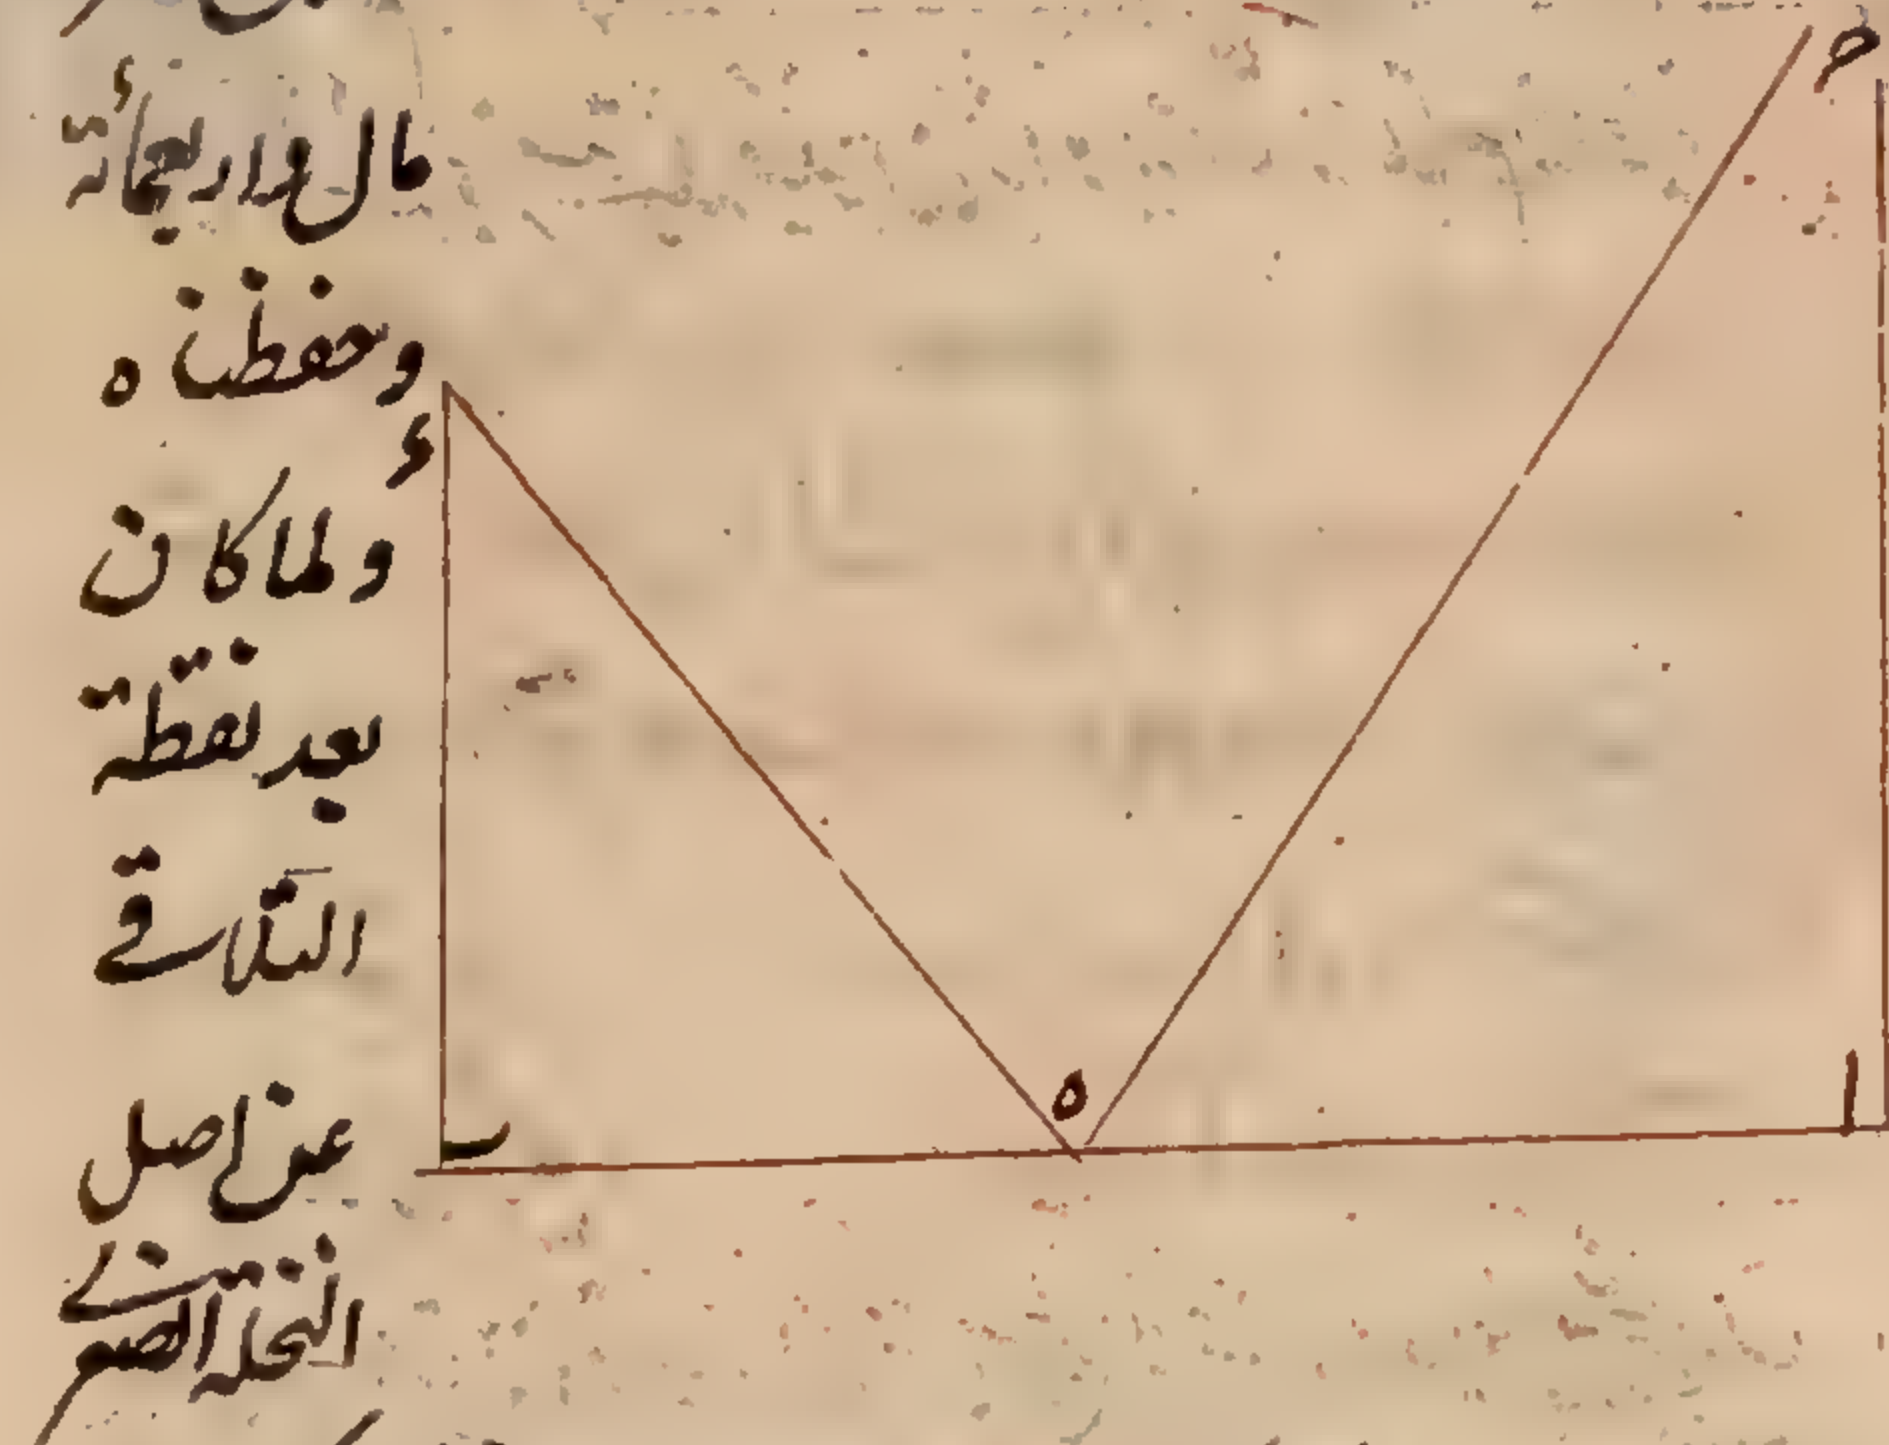 مال واربعمائة
وحفظناه
ولما كان
بعد نقطة
التلاقي
عن اصل
النخلة الصغرى
ح
ه
ا
ب